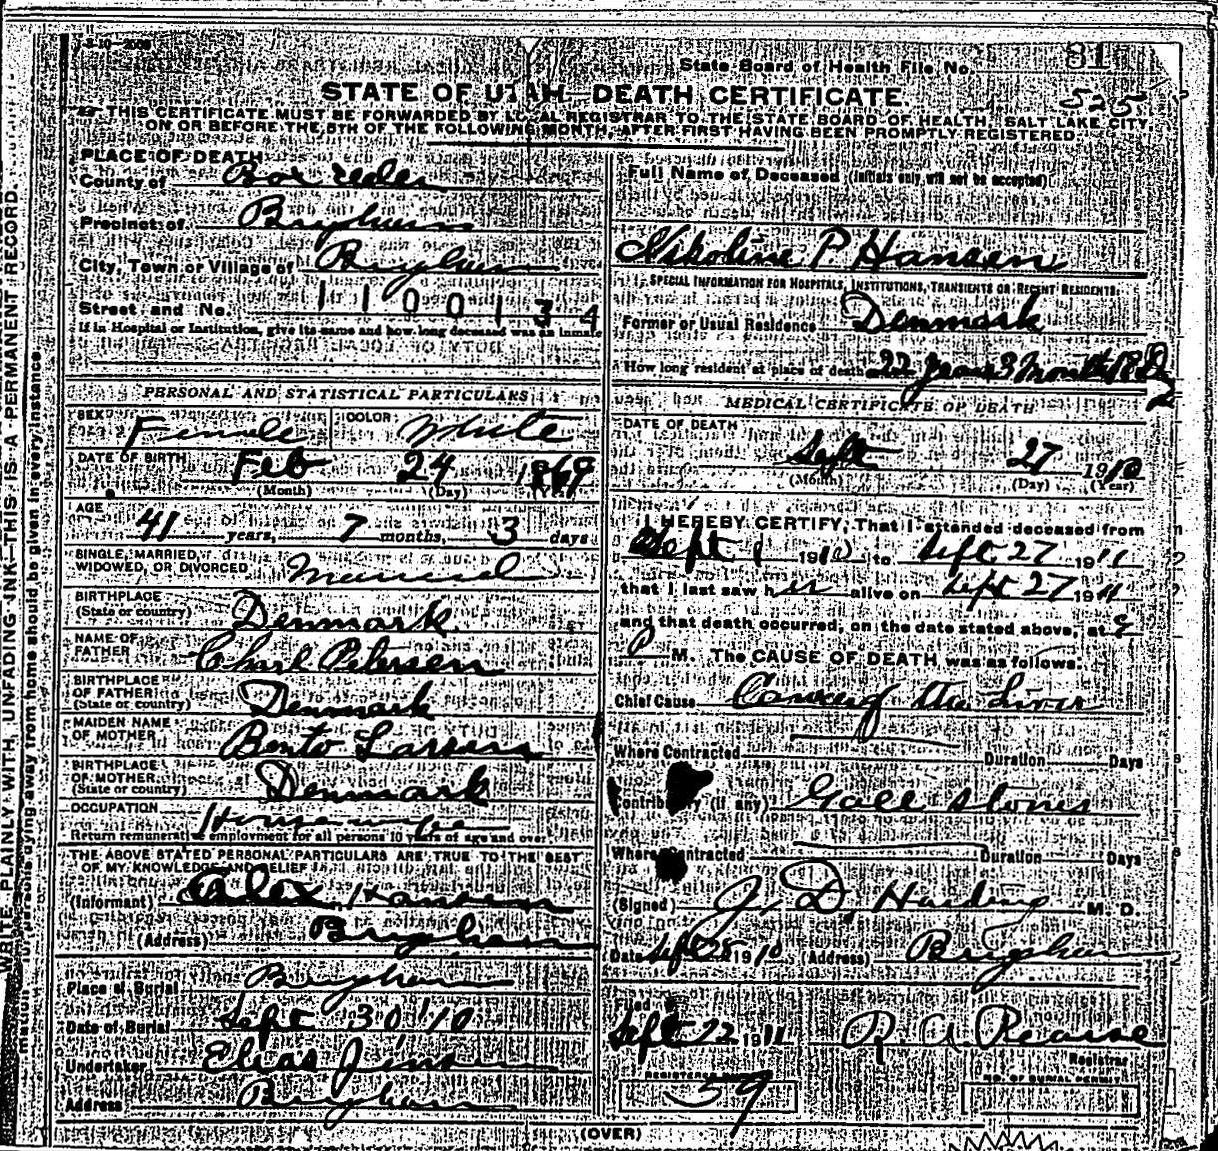 State Board of Health File No. 81
STATE OF UTAH—DEATH CERTIFICATE.
525
THIS CERTIFICATE MUST BE FORWARDED BY LOCAL REGISTRAR TO THE STATE BOARD OF HEALTH, SALT LAKE CITY,
ON OR BEFORE THE 5TH OF THE FOLLOWING MONTH, AFTER FIRST HAVING BEEN PROMPTLY REGISTERED.
WRITE PLAINLY WITH UNFADING INK—THIS IS A PERMANENT RECORD.
dying away from home should be given in every instance.
PLACE OF DEATH
County of Box Elder
Precinct of Brigham
City, Town or Village of Brigham
Street and No. 1 1 0 0 1 3 4
If in Hospital or Institution, give its name and how long deceased was an inmate
PERSONAL AND STATISTICAL PARTICULARS
SEX Female COLOR White
DATE OF BIRTH Feb 24 1869
(Month) (Day) (Year)
AGE 41 years, 7 months, 3 days
SINGLE, MARRIED, WIDOWED, OR DIVORCED Married
BIRTHPLACE (State or country) Denmark
NAME OF FATHER Charl Petersen
BIRTHPLACE OF FATHER (State or country) Denmark
MAIDEN NAME OF MOTHER Bento Larsen
BIRTHPLACE OF MOTHER (State or country) Denmark
OCCUPATION Housewife
Return remunerative employment for all persons 10 years of age and over
THE ABOVE STATED PERSONAL PARTICULARS ARE TRUE TO THE BEST
OF MY KNOWLEDGE AND BELIEF
(Informant) Hansen
(Address) Brigham
Place of Burial Brigham
Date of Burial Sept 30 '10
Undertaker Elias Jens
Address Brigham
Full Name of Deceased (Initials only will not be accepted)
Nikoline P Hansen
SPECIAL INFORMATION FOR HOSPITALS, INSTITUTIONS, TRANSIENTS OR RECENT RESIDENTS.
Former or Usual Residence Denmark
How long resident at place of death 22 years 3 Month
MEDICAL CERTIFICATE OF DEATH
DATE OF DEATH
Sept 27 1910
(Month) (Day) (Year)
I HEREBY CERTIFY, That I attended deceased from
Sept 1 1910 to Sept 27 1911
that I last saw her alive on Sept 27 1911
and that death occurred, on the date stated above, at 9
P M. The CAUSE OF DEATH was as follows:
Chief Cause Cancer of the Liver
Where Contracted Duration Days
Contributory (if any) Gall stones
Where Contracted Duration Days
(Signed) J. D. Harding M. D.
Date Sept 28 1910 (Address) Brigham
Filed
Sept 22 1911 R. A. Pearse
Registrar
REGISTERED NO. 59
NO. OF BURIAL PERMIT
(OVER)